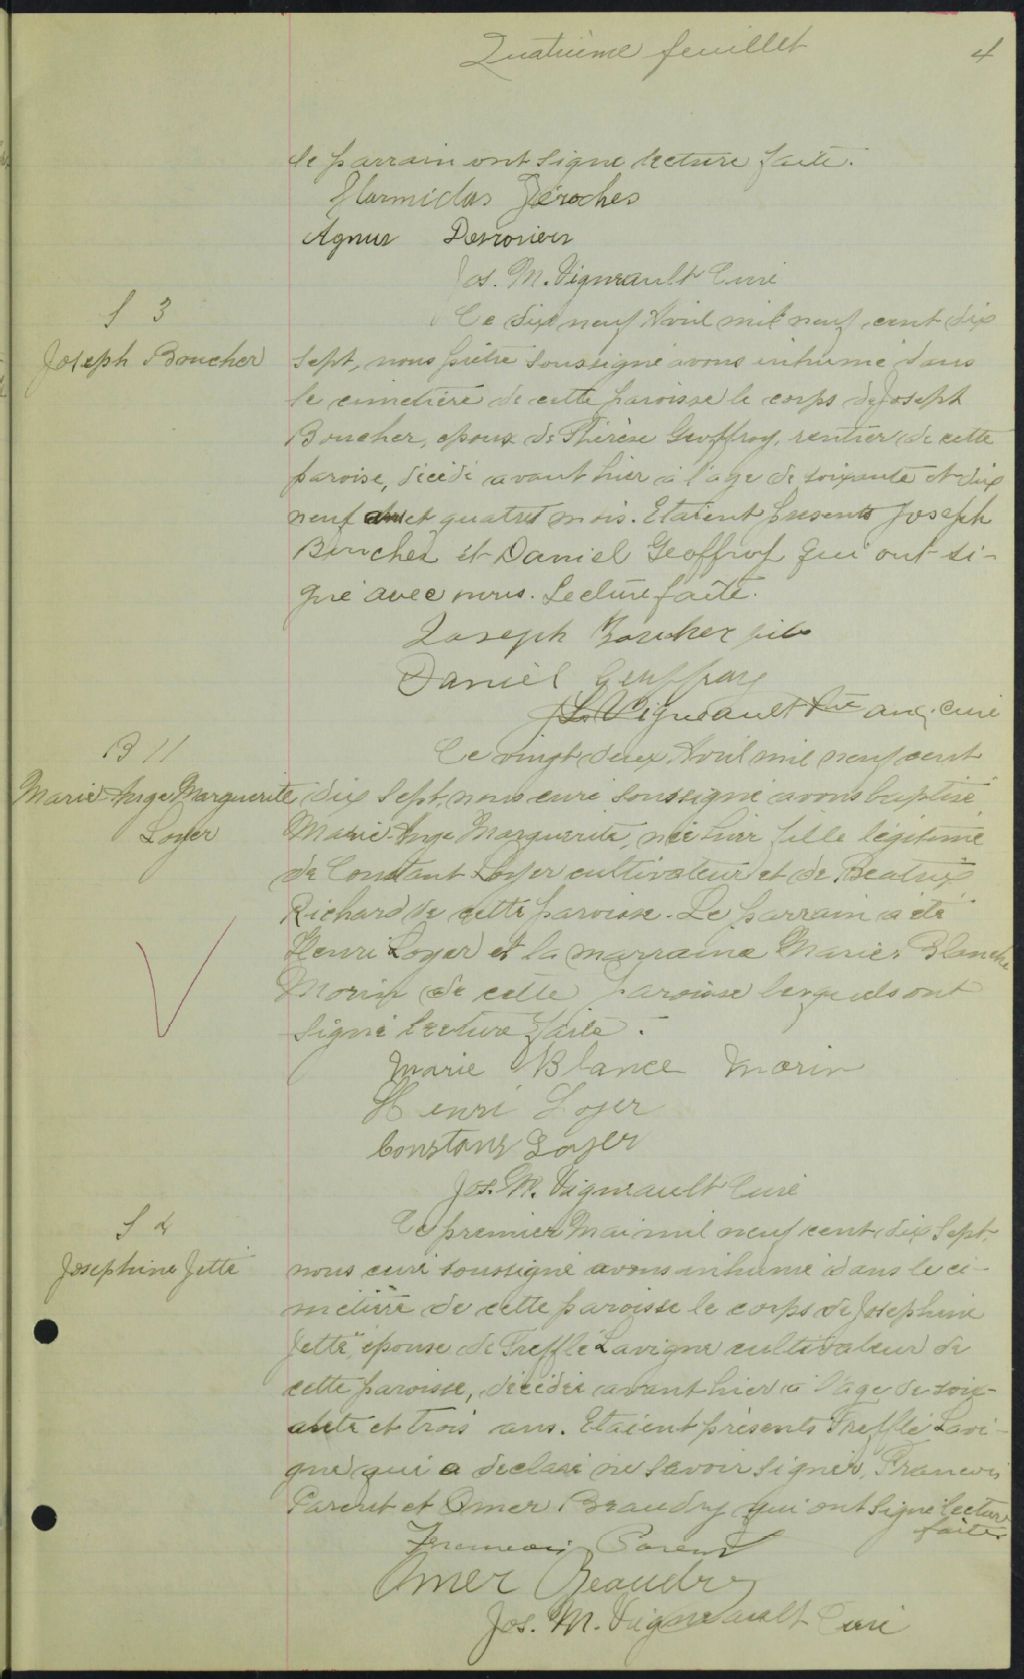 Quatrième feuillet 4
le parrain ont signé lecture faite.
Harmidas Déroches
Agnus Desrosiers
Jos. M. Vigneault Curé
S 3
Joseph Boucher
Ce dix neuf Avril mil neuf cent dix
sept, nous prêtre soussigné avons inhumé dans
le cimetière de cette paroisse le corps de Joseph
Boucher, epoux de Thérèse Geoffroy, rentier de cette
paroise, décédé avant hier à l'age de soixante et dix
neuf ans et quatres mois. Etaient présents Joseph
Boucher et Daniel Geoffroy qui ont si-
gné avec nous. Lecture faite.
Joseph Boucher fils
Daniel Geoffroy
Vigneault Ptre anc. curé
B 11
Marie-Ange Marguerite
Loyer
Ce vingt deux Avril mil neuf cent
dix sept, nous curé soussigné avons baptisé
Marie-Ange Marguerite, née hier fille légitime
de Constant Loyer cultivateur et de Beatrix
Richard de cette paroisse. Le parrain a été
Henri Loyer et la marraine Marie Blanche
Morin de cette paroisse lesquels ont
signé lecture faite.
Marie Blance Morin
Henri Loyer
Constans Loyer
Jos. M. Vigneault Curé
S 4
Josephine Jetté
Ce premier Mai mil neuf cent dix sept,
nous curé soussigné avons inhumé dans le ci-
metière de cette paroisse le corps de Josephine
Jetté, épouse de Treffle Lavigne cultivateur de
cette paroisse, décédée avant hier à l'age de soix-
ante et trois ans. Etaient présents Treffle Lavi-
gne qui a declaré ne savoir signer, Francois
Parent et Omer Beaudry qui ont signé lecture
faite.
Francois Parent
Omer Beaudry
Jos. M. Vigneault Curé